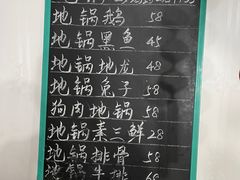 地锅鹅 58
地锅黑鱼 45
地锅地龙 48
地锅兔子 58
狗肉地锅 58
地锅素三鲜 28
地锅排骨 58
地锅牛排 68